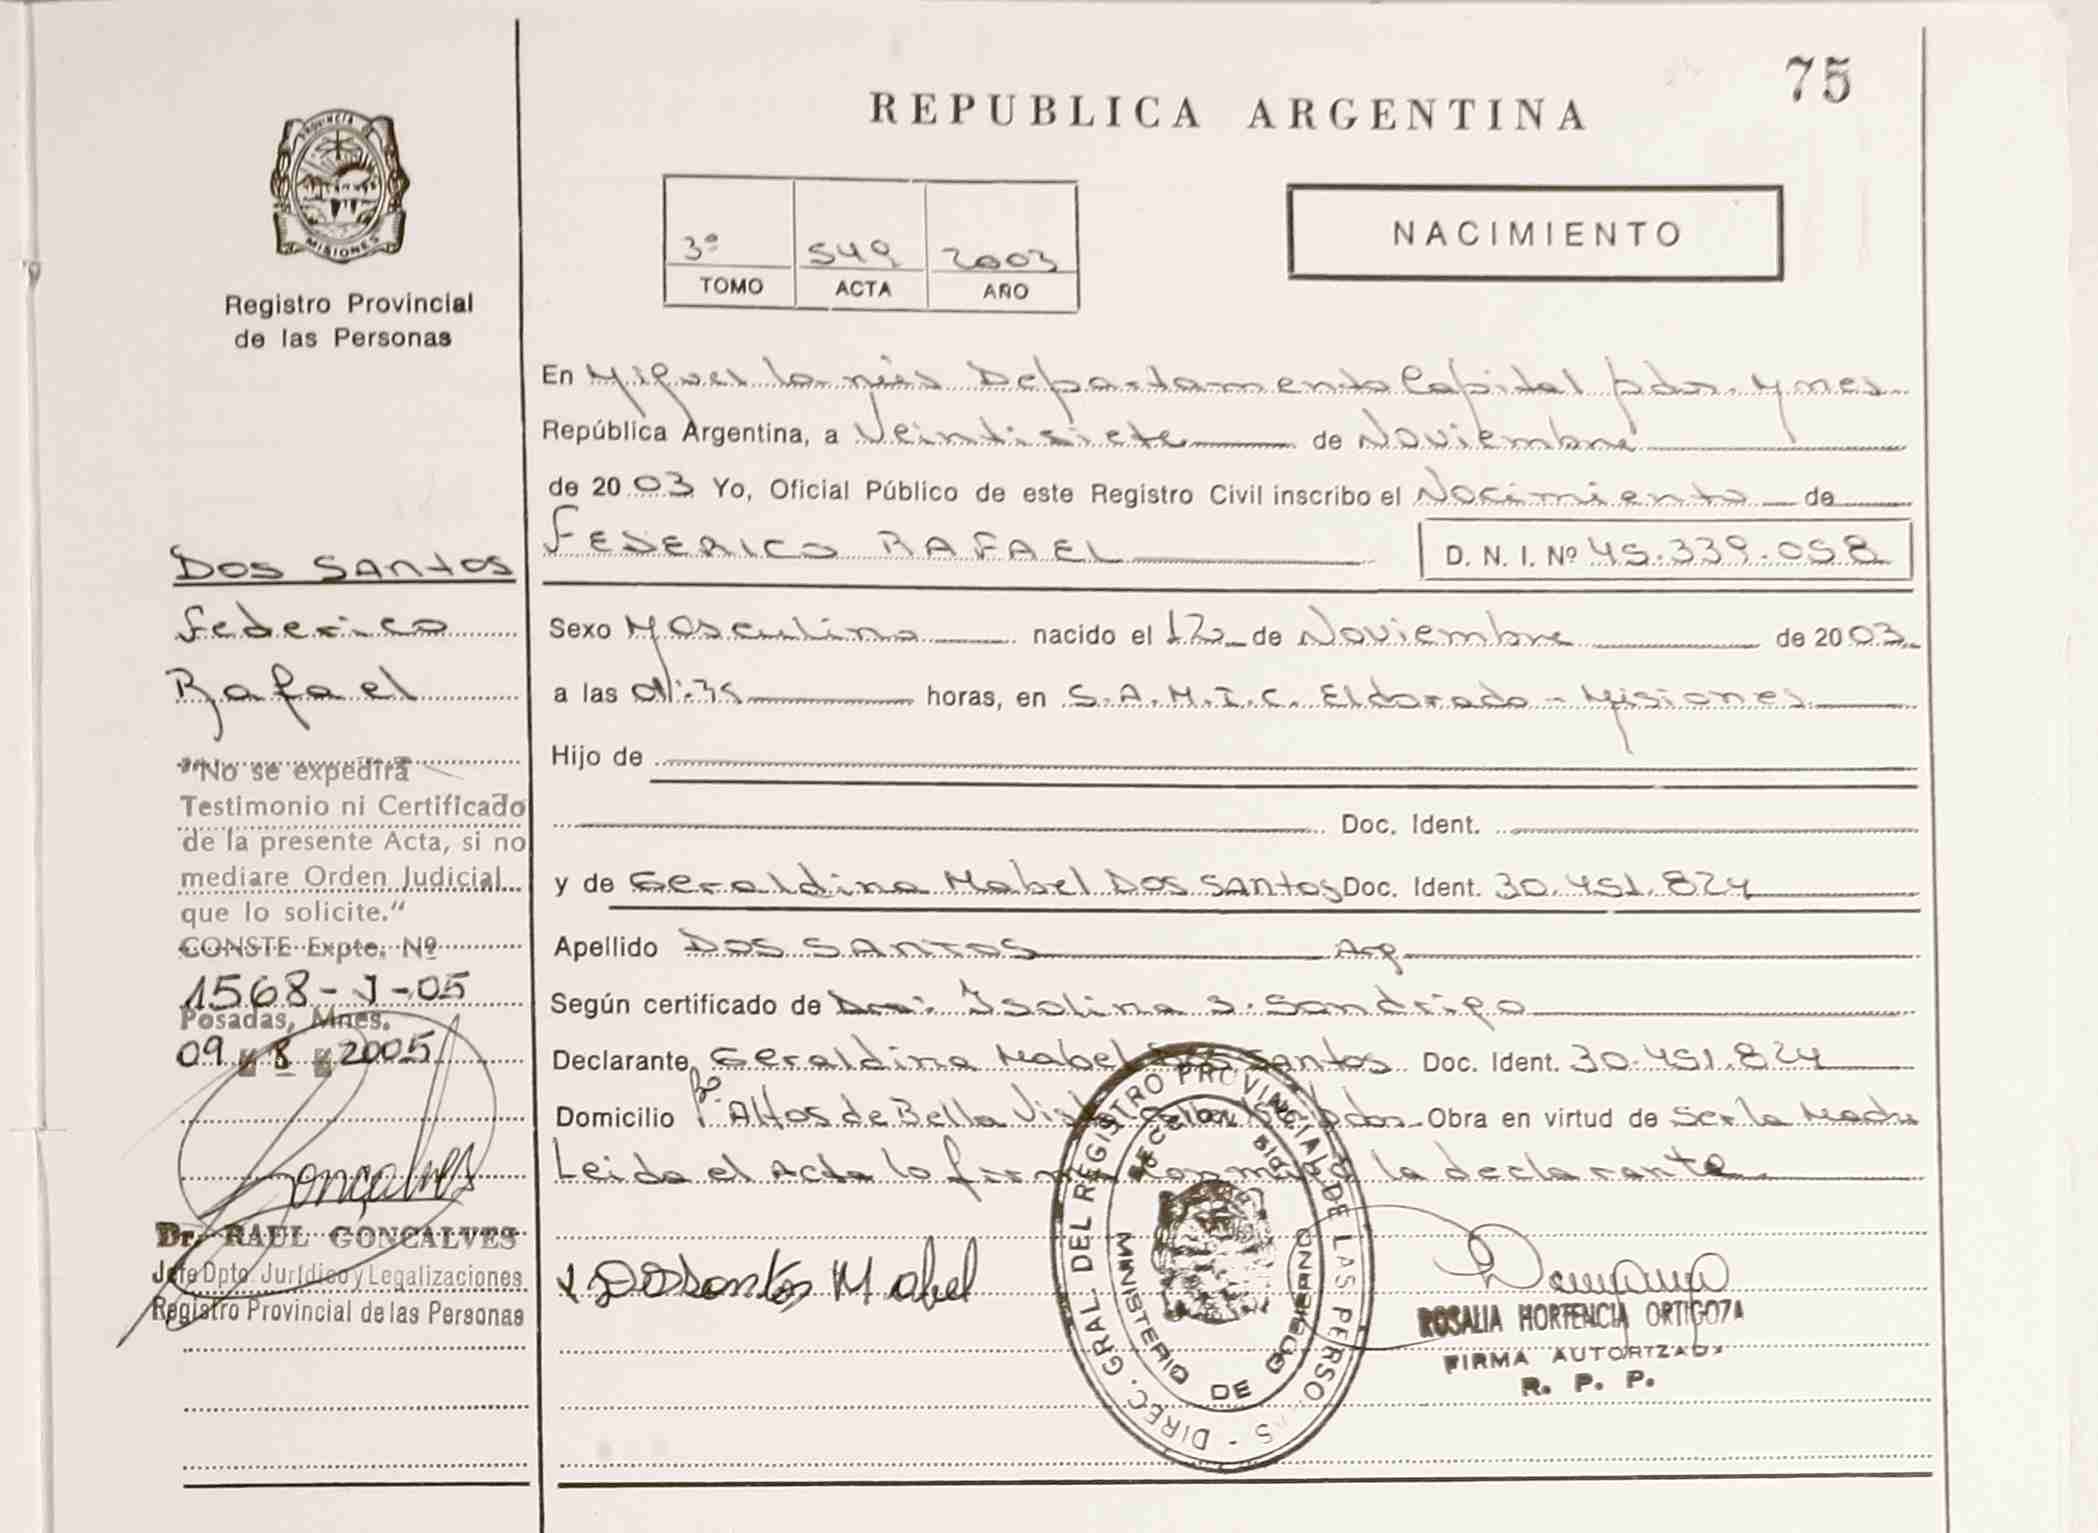 75
REPUBLICA ARGENTINA
PROVINCIA DE
MISIONES
Registro Provincial
de las Personas
3º 549 2003
TOMO ACTA AÑO
NACIMIENTO
En Miguel Departamento Capital pdas. Mnes
República Argentina, a Veintisiete de Noviembre
de 2003 Yo, Oficial Público de este Registro Civil inscribo el Nacimiento de
FEDERICO RAFAEL D. N. I. Nº 45.339.058
Sexo Masculino nacido el 12 de Noviembre de 2003
a las horas, en S.A.M.I.C. Eldorado - Misiones
Hijo de
Doc. Ident.
y de Geraldina Mabel Dos Santos Doc. Ident. 30.451.824
Apellido Dos Santos Arg
Según certificado de Dra: Isolina S. Sandrigo
Declarante Geraldina Mabel Dos Santos Doc. Ident. 30.451.824
Domicilio Bº Altos de Bella Vista pdas. Obra en virtud de Ser la Madre
Leida el Acta la firma la declarante
Dos Santos
Federico
Rafael
"No se expedirá
Testimonio ni Certificado
de la presente Acta, si no
mediare Orden Judicial
que lo solicite."
CONSTE Expte. Nº
1568-J-05
Posadas, Mnes.
09 8 2005
Gonçalves
Dr. RAUL GONCALVES
Jefe Dpto. Jurídico y Legalizaciones
Registro Provincial de las Personas
x Dos Santos Mabel
DIREC. GRAL. DEL REGISTRO PROVINCIAL DE LAS PERSONAS
MINISTERIO DE GOBIERNO
ROSALIA HORTENCIA ORTIGOZA
FIRMA AUTORIZADA
R. P. P.